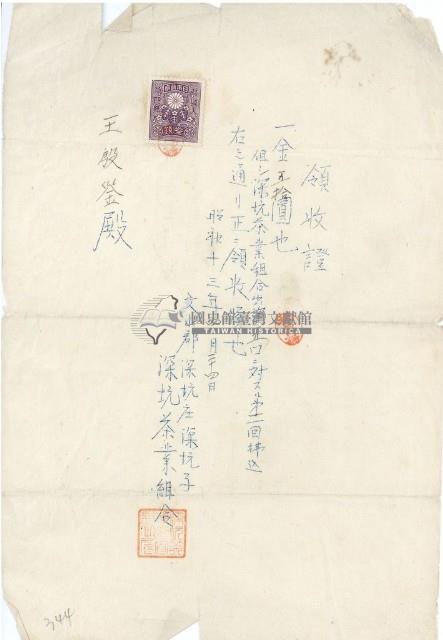 領收證
一金五拾圓也
但シ深坑茶業組合出資 口ニ對スル第一回拂込
右之通リ正ニ領收候也
昭和十三年 月二十四日
文山郡深坑庄深坑子
深坑茶業組合
王殷螢殿
國史館臺灣文獻館
TAIWAN HISTORICA
344